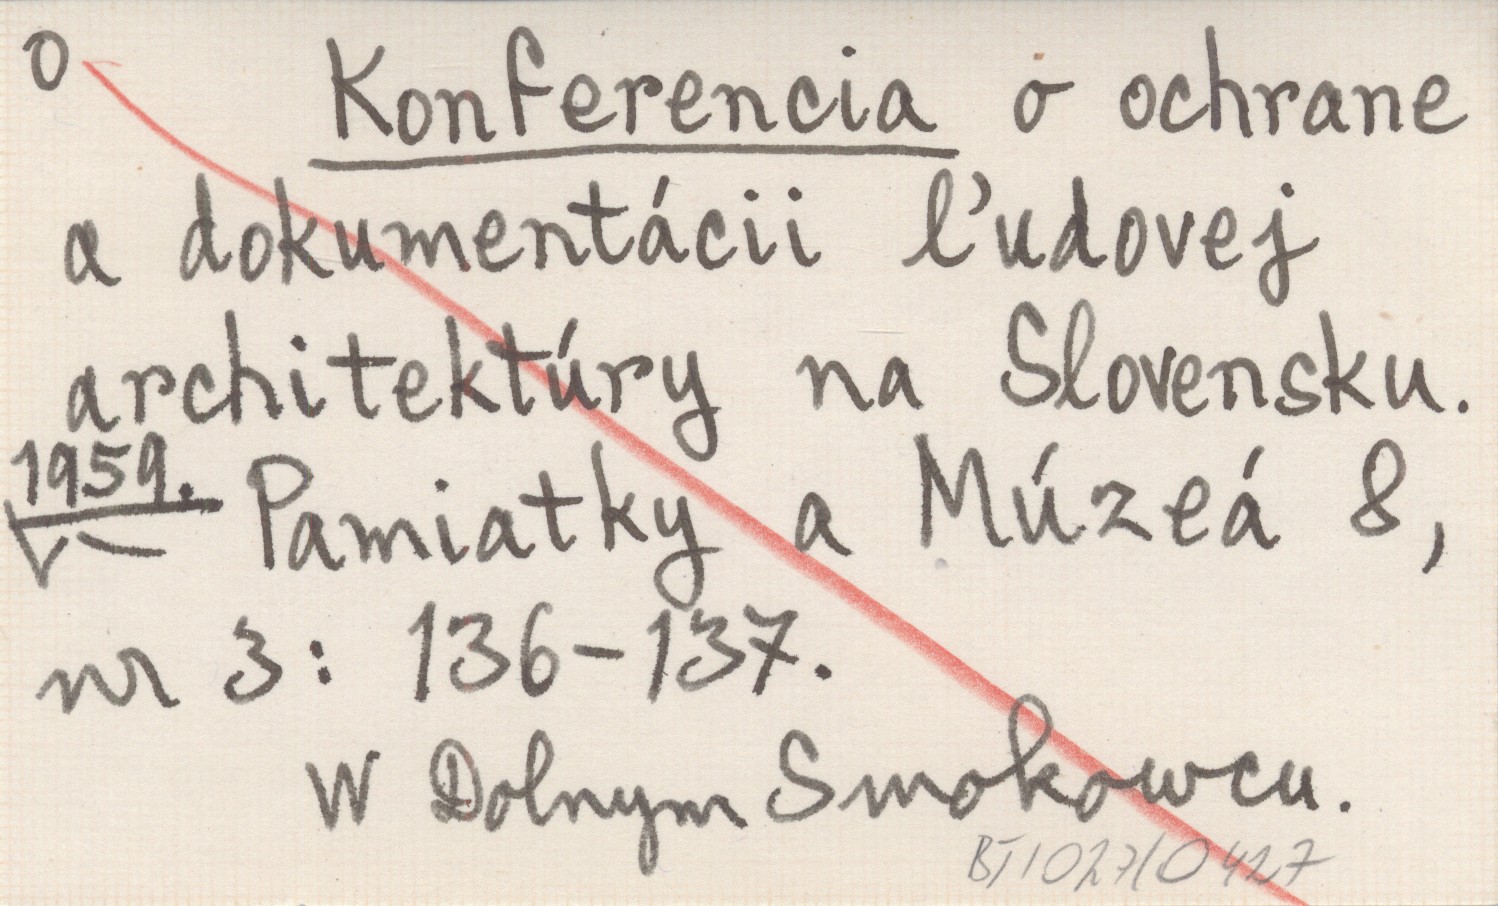 O Konferencia o ochrane
a dokumentácii ľudovej
architektúry na Slovensku.
1959. Pamiatky a Múzeá 8,
nr 3: 136-137.
W Dolnym Smokowcu.
BT/1027/0427